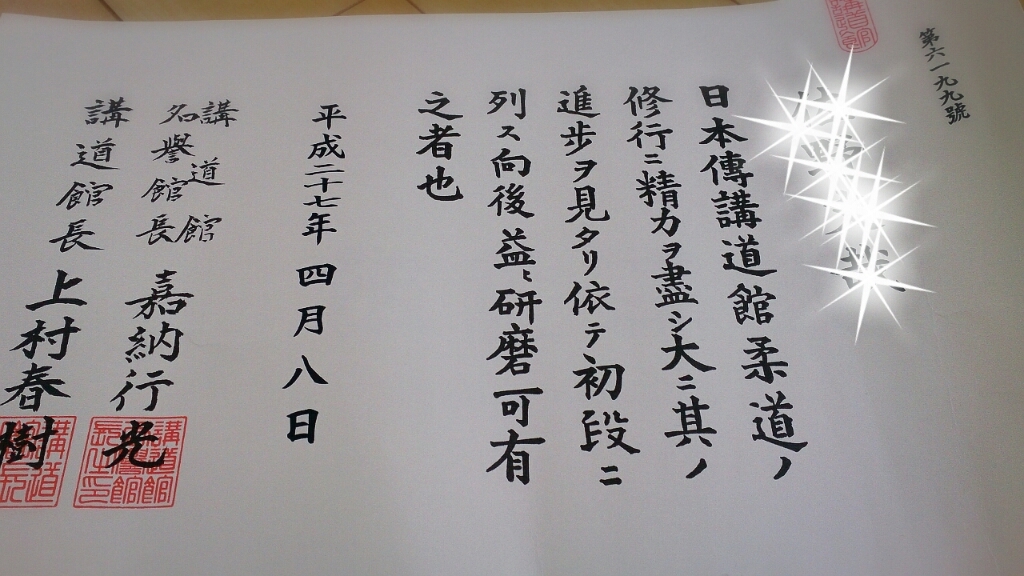 第六一九九號
日本傳講道館柔道ノ
修行ニ精力ヲ盡シ大ニ其ノ
進歩ヲ見タリ依テ初段ニ
列ス向後益〻研磨可有
之者也
平成二十七年四月八日
講道館
名譽館長 嘉納行光
講道館長 上村春樹